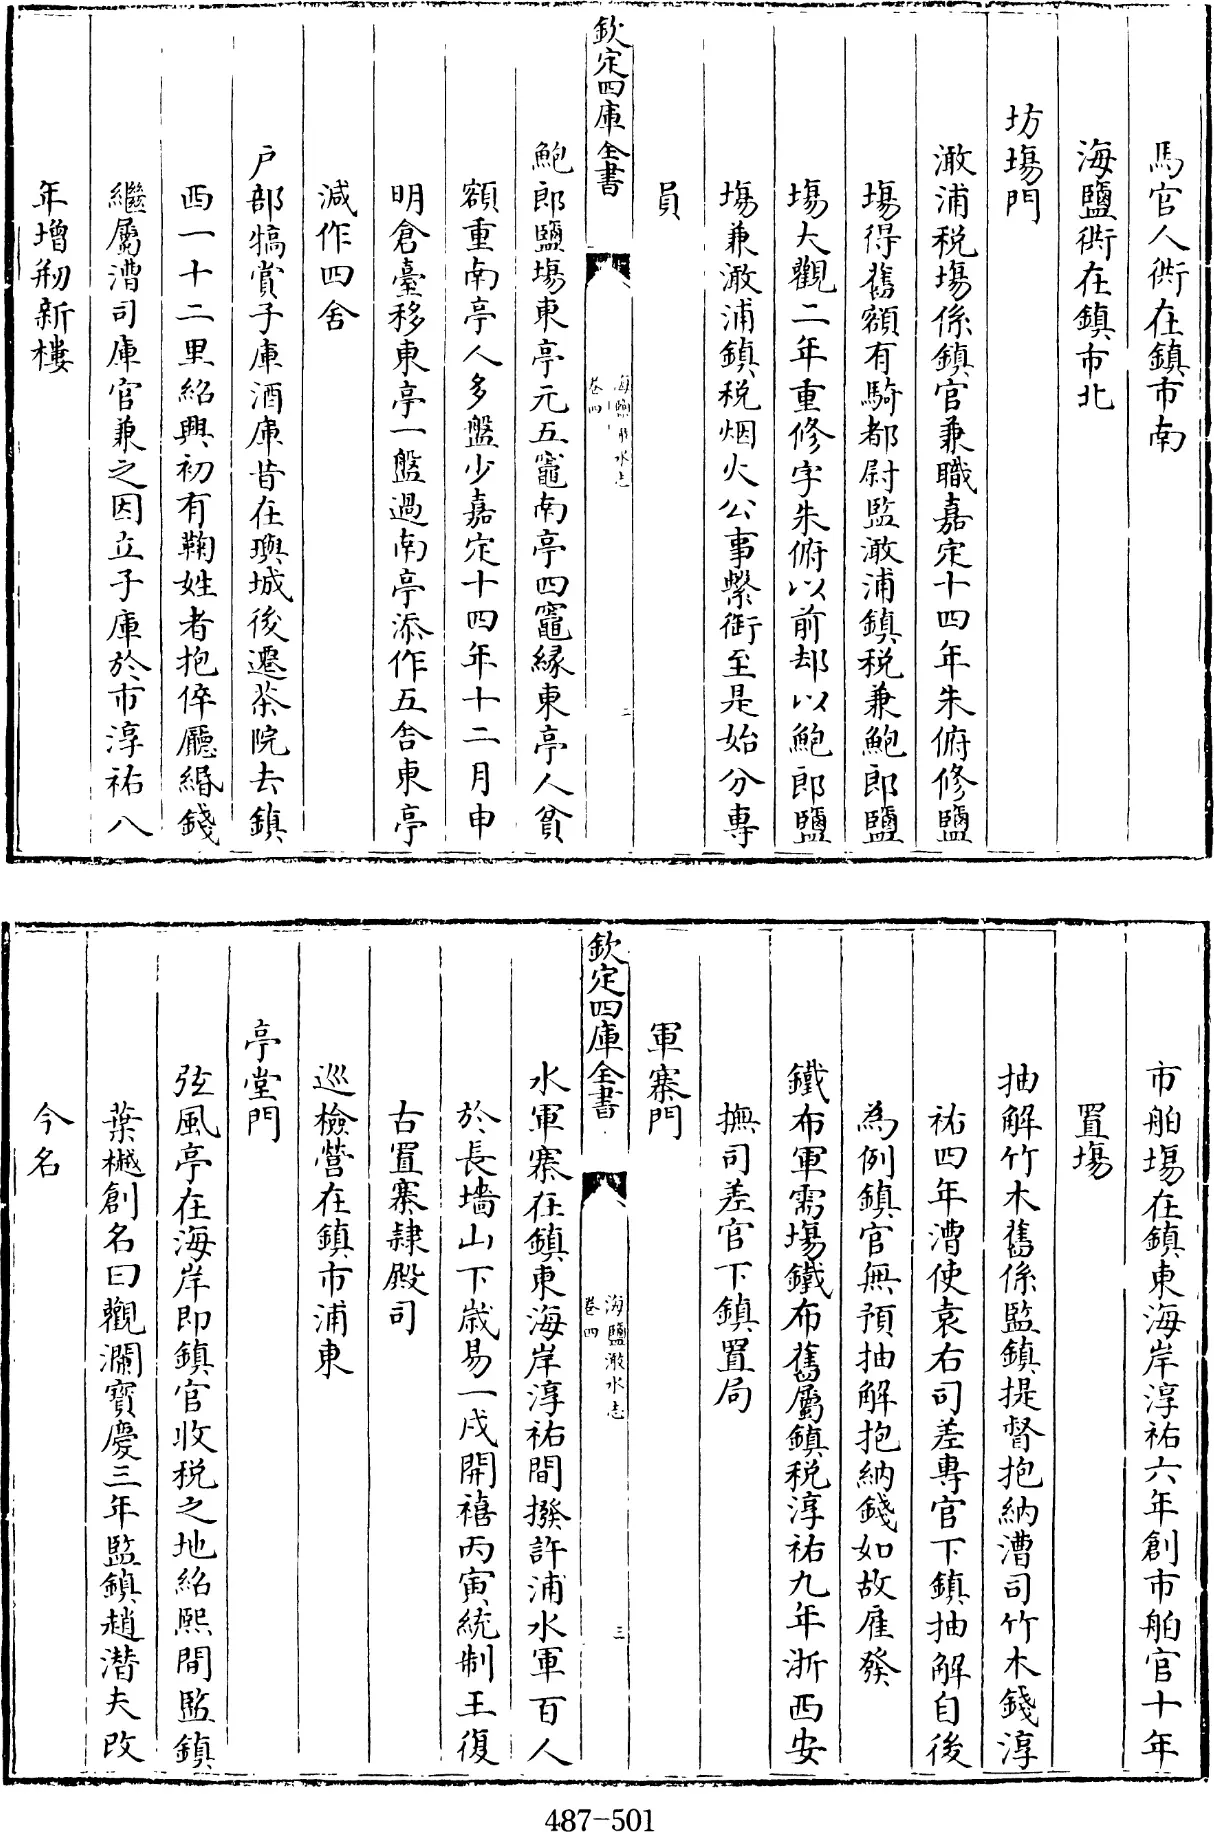 馬官人衖在鎮市南
海鹽衖在鎮市北
坊塲門
澉浦稅塲係鎮官兼職嘉定十四年朱俯修鹽
塲得舊額有騎都尉監澉浦鎮稅兼鮑郎鹽
塲大觀二年重修字朱俯以前却以鮑郎鹽
塲兼澉浦鎮稅烟火公事繫銜至是始分專
員
欽定四庫全書
海鹽澉水志
卷四
二
鮑郎鹽塲東亭元五竈南亭四竈縁東亭人貧
額重南亭人多盤少嘉定十四年十二月申
明倉臺移東亭一盤過南亭添作五舍東亭
減作四舍
戶部犒賞子庫酒庫昔在璵城後遷茶院去鎮
西一十二里紹興初有鞠姓者抱倅廳緡錢
繼屬漕司庫官兼之因立子庫於市淳祐八
年增剏新樓
市舶塲在鎮東海岸淳祐六年創市舶官十年
置塲
抽解竹木舊係監鎮提督抱納漕司竹木錢淳
祐四年漕使袁右司差專官下鎮抽解自後
為例鎮官無預抽解抱納錢如故雇發
鐵布軍需塲鐵布舊屬鎮稅淳祐九年浙西安
撫司差官下鎮置局
軍寨門
欽定四庫全書
海鹽澉水志
卷四
三
水軍寨在鎮東海岸淳祐間撥許浦水軍百人
於長墻山下歲易一戍開禧丙寅統制王復
古置寨隷殿司
巡檢營在鎮市浦東
亭堂門
弦風亭在海岸即鎮官收稅之地紹熙間監鎮
葉樾創名曰觀瀾寶慶三年監鎮趙潜夫改
今名
487-501